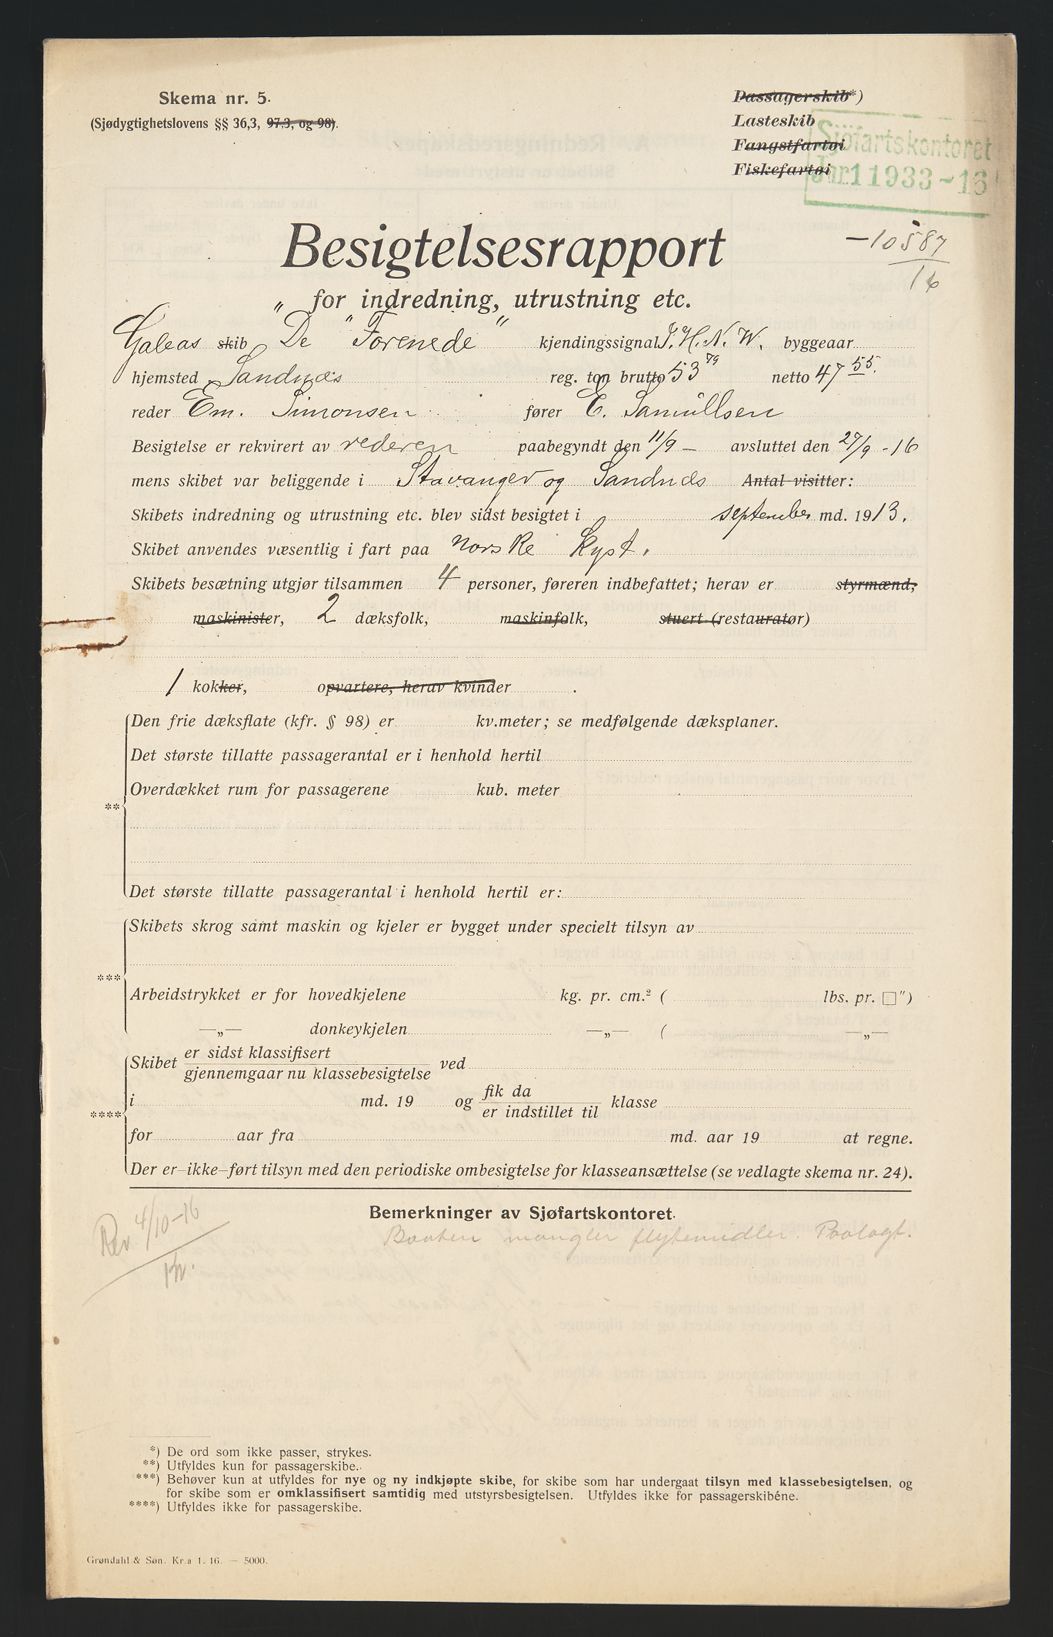 Skema nr. 5.
(Sjødygtighetslovens §§ 36,3, 97,3, og 98).
Passagerskib*)
Lasteskib
Fangstfartøi
Fiskefartøi
Sjöfartskontoret
Jnr. 11933-16
—10587
16
Besigtelsesrapport
for indredning, utrustning etc.
Galeas skib „De "Forenede" kjendingssignal J. H. N. W. byggeaar
hjemsted Sandnæs reg. ton brutto 53 79 netto 47 55.
reder Em. Simonsen fører E. Samullsen
Besigtelse er rekvirert av rederen paabegyndt den 11/9 — avsluttet den 27/9 - 16
mens skibet var beliggende i Stavanger og Sandnæs Antal visitter:
Skibets indredning og utrustning etc. blev sidst besigtet i september md. 1913.
Skibet anvendes væsentlig i fart paa norske kyst.
Skibets besætning utgjør tilsammen 4 personer, føreren indbefattet; herav er styrmænd,
maskinister, 2 dæksfolk, maskinfolk, stuert (restauratør)
1 kokker, opvartere, herav kvinder .
Den frie dæksflate (kfr. § 98) er kv.meter; se medfølgende dæksplaner.
Det største tillatte passagerantal er i henhold hertil
Overdækket rum for passagerene kub. meter
**
Det største tillatte passagerantal i henhold hertil er:
Skibets skrog samt maskin og kjeler er bygget under specielt tilsyn av
***
Arbeidstrykket er for hovedkjelene kg. pr. cm.² ( lbs. pr. □")
—„— donkeykjelen —„— ( —„—
Skibet er sidst klassifisert
gjennemgaar nu klassebesigtelse ved
i md. 19 og fik da
er indstillet til klasse
****
for aar fra md. aar 19 at regne.
Der er—ikke—ført tilsyn med den periodiske ombesigtelse for klasseansættelse (se vedlagte skema nr. 24).
Bemerkninger av Sjøfartskontoret.
Rev 4/10-16
Baaten mangler flytemidler. Paalagt.
*) De ord som ikke passer, strykes.
**) Utfyldes kun for passagerskibe.
***) Behøver kun at utfyldes for nye og ny indkjøpte skibe, for skibe som har undergaat tilsyn med klassebesigtelsen, og
for skibe som er omklassifisert samtidig med utstyrsbesigtelsen. Utfyldes ikke for passagerskibéne.
****) Utfyldes ikke for passagerskibe.
Grøndahl & Søn. Kr.a 1. 16. — 5000.